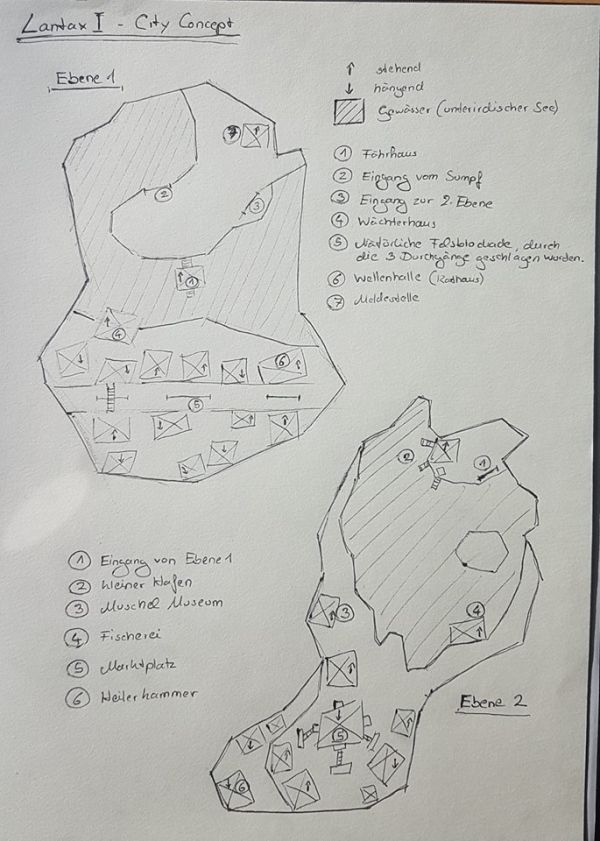 Lantax I - City Concept
Ebene 1
↑ stehend
↓ hängend
Gewässer (unterirdischer See)
① Fährhaus
② Eingang vom Sumpf
③ Eingang zur 2. Ebene
④ Wächterhaus
⑤ Natürliche Felsblockade, durch
die 3 Durchgänge geschlagen wurden.
⑥ Wellenhalle (Rathaus)
⑦ Meldestelle
7
2
3
1
4
6
5
① Eingang von Ebene 1
② kleiner Hafen
③ Muschel Museum
④ Fischerei
⑤ Marktplatz
⑥ Heilerkammer
2
1
3
4
5
6
Ebene 2